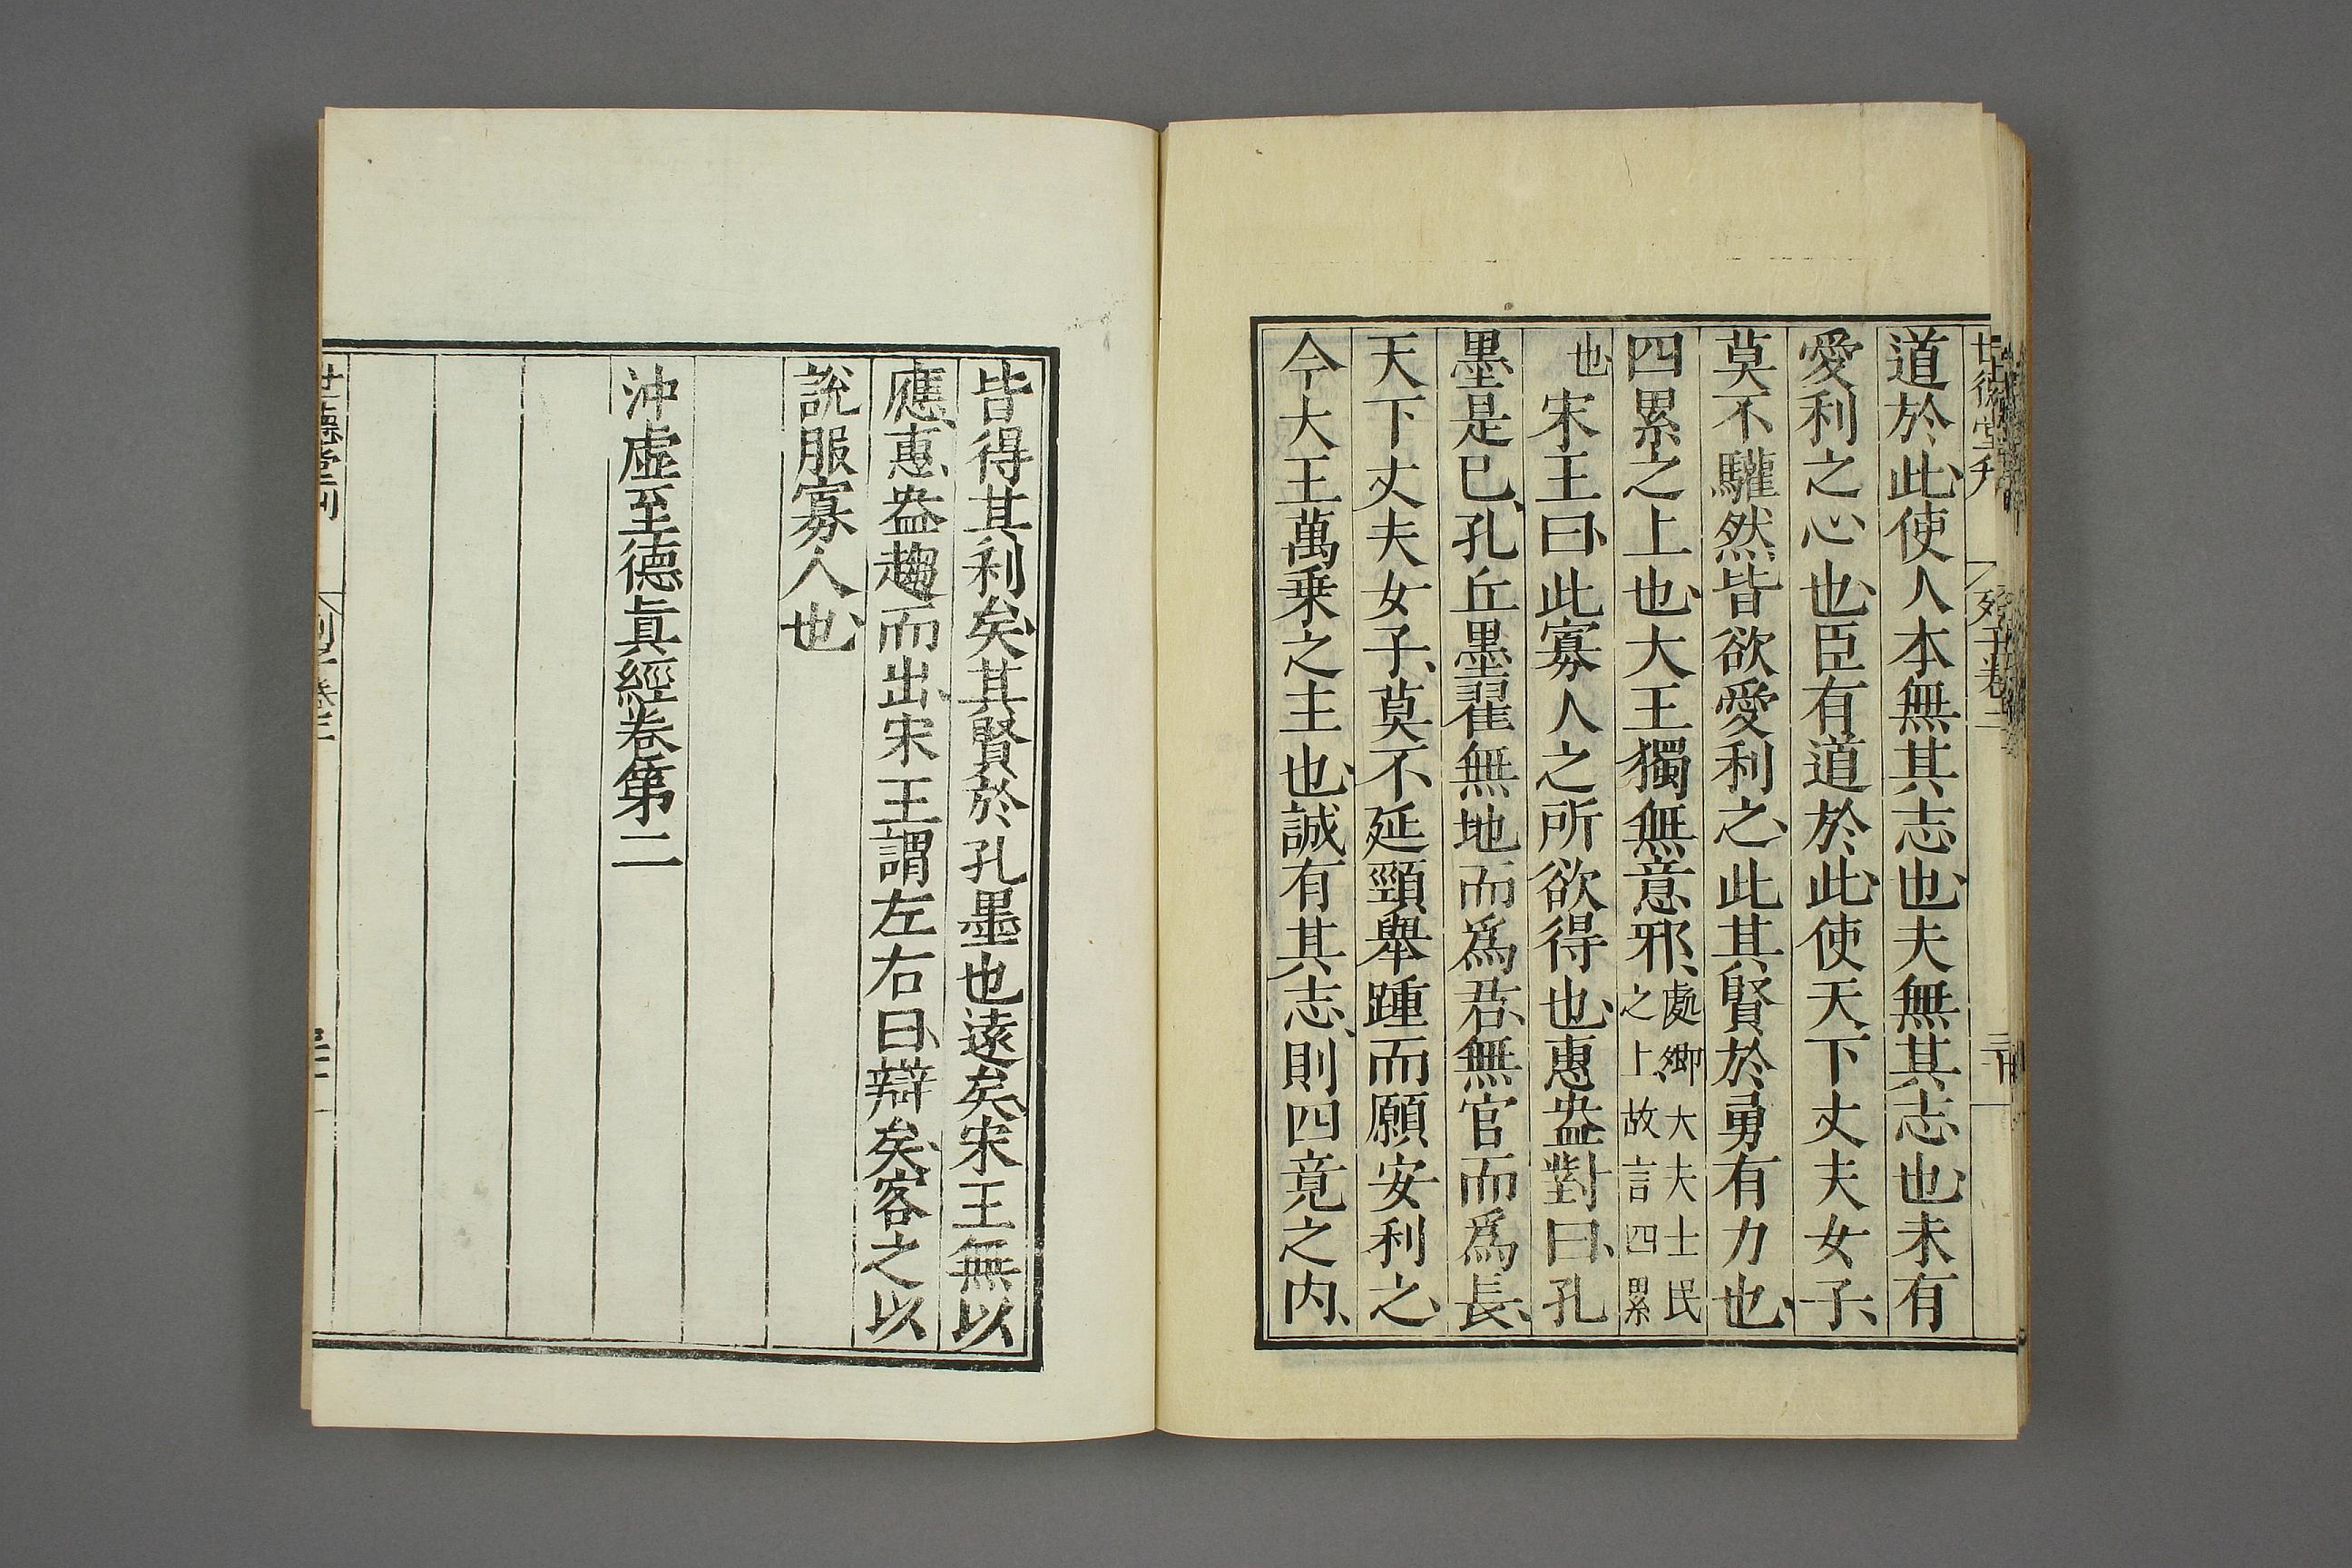 道於此使人本無其志也夫無其志也未有
愛利之心也臣有道於此使天下丈夫女子
莫不驩然皆欲愛利之此其賢於勇有力也
四累之上也大王獨無意邪處卿大夫士民之上故言四累
也宋王曰此寡人之所欲得也惠盎對曰孔
墨是已孔丘墨翟無地而爲君無官而爲長
天下丈夫女子莫不延頸舉踵而願安利之
今大王萬乗之主也誠有其志則四竟之内
皆得其利矣其賢於孔墨也遠矣宋王無以
應惠盎趨而出宋王謂左右曰辯矣客之以
說服寡人也
沖虛至德眞經卷第二
世德堂刊